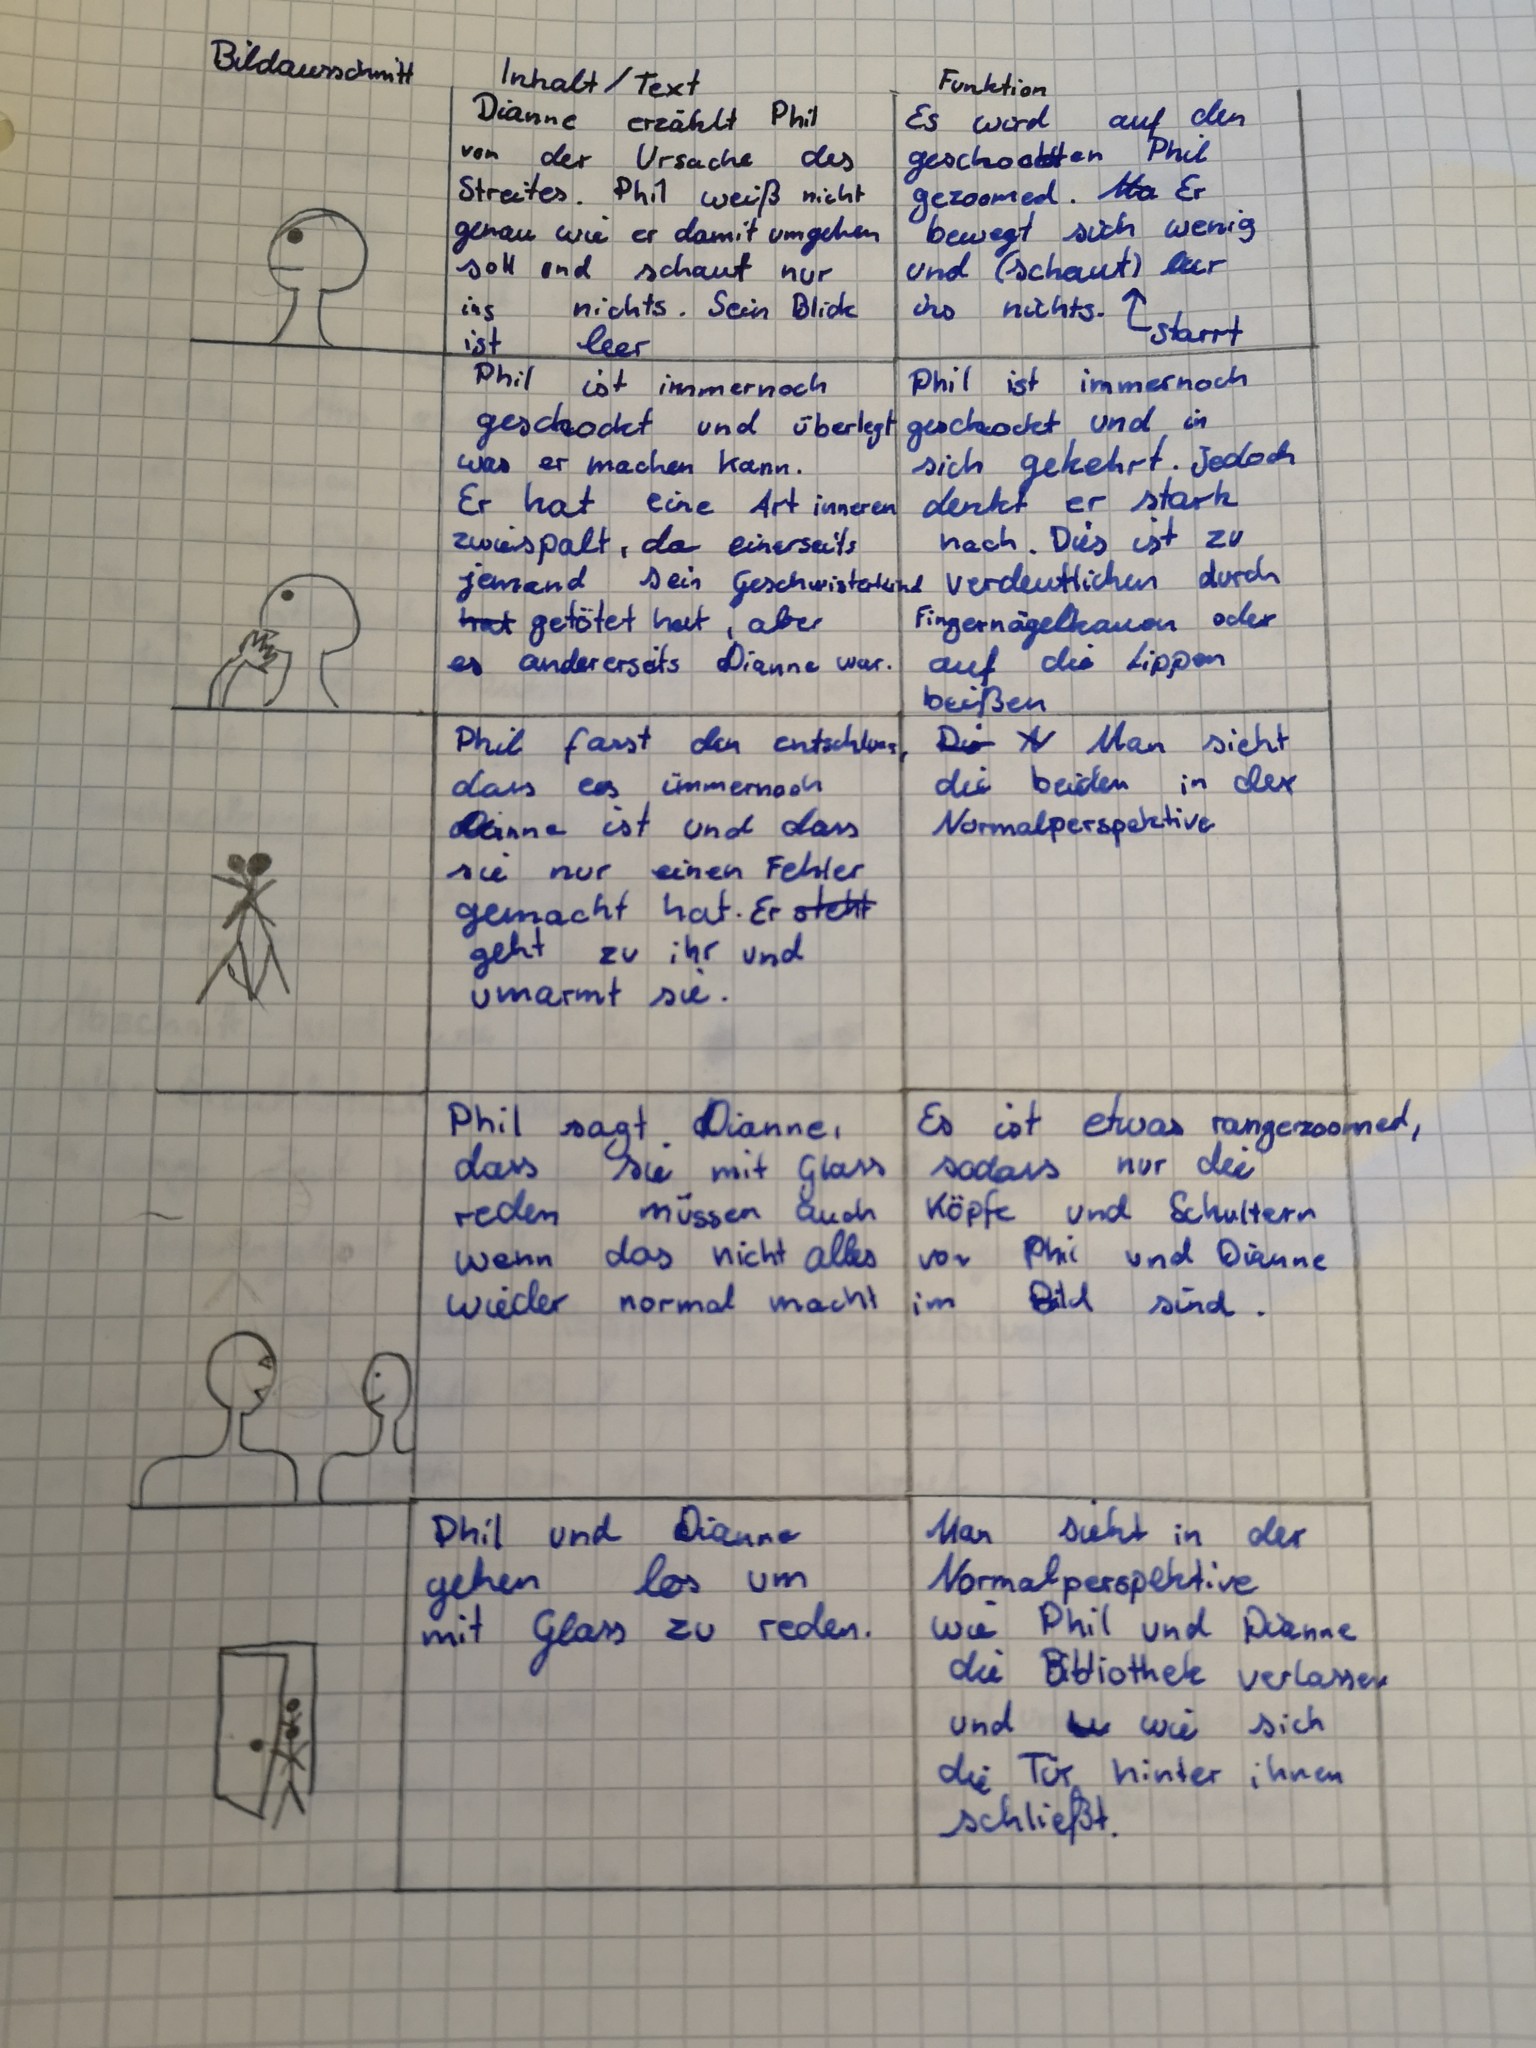 Bildausschnitt
Inhalt/Text
Funktion
Dianne erzählt Phil
von der Ursache des
Streites. Phil weiß nicht
genau wie er damit umgehen
soll und schaut nur
ins nichts. Sein Blick
ist leer
Es wird auf den
geschockten Phil
gezoomed. Er
bewegt sich wenig
und (schaut) leer
ins nichts.
starrt
Phil ist immernoch
geschockt und überlegt
was er machen kann.
Er hat eine Art inneren
zwiespalt, da einerseits
jemand sein Geschwisterkind
hat getötet hat, aber
es andererseits Dianne war.
Phil ist immernoch
geschockt und in
sich gekehrt. Jedoch
denkt er stark
nach. Dies ist zu
verdeutlichen durch
Fingernägelkauen oder
auf die Lippen
beißen
Phil fasst den entschluss,
dass es immernoch
Dianne ist und dass
sie nur einen Fehler
gemacht hat. Er steht
geht zu ihr und
umarmt sie.
Die Man sieht
die beiden in der
Normalperspektive
Phil sagt Dianne,
dass sie mit Glass
reden müssen auch
wenn das nicht alles
wieder normal macht
Es ist etwas rangezoomed,
sodass nur die
Köpfe und Schultern
von Phil und Dianne
im Bild sind.
Phil und Dianne
gehen los um
mit Glass zu reden.
Man sieht in der
Normalperspektive
wie Phil und Dianne
die Bibliothek verlassen
und wie sich
die Tür hinter ihnen
schließt.